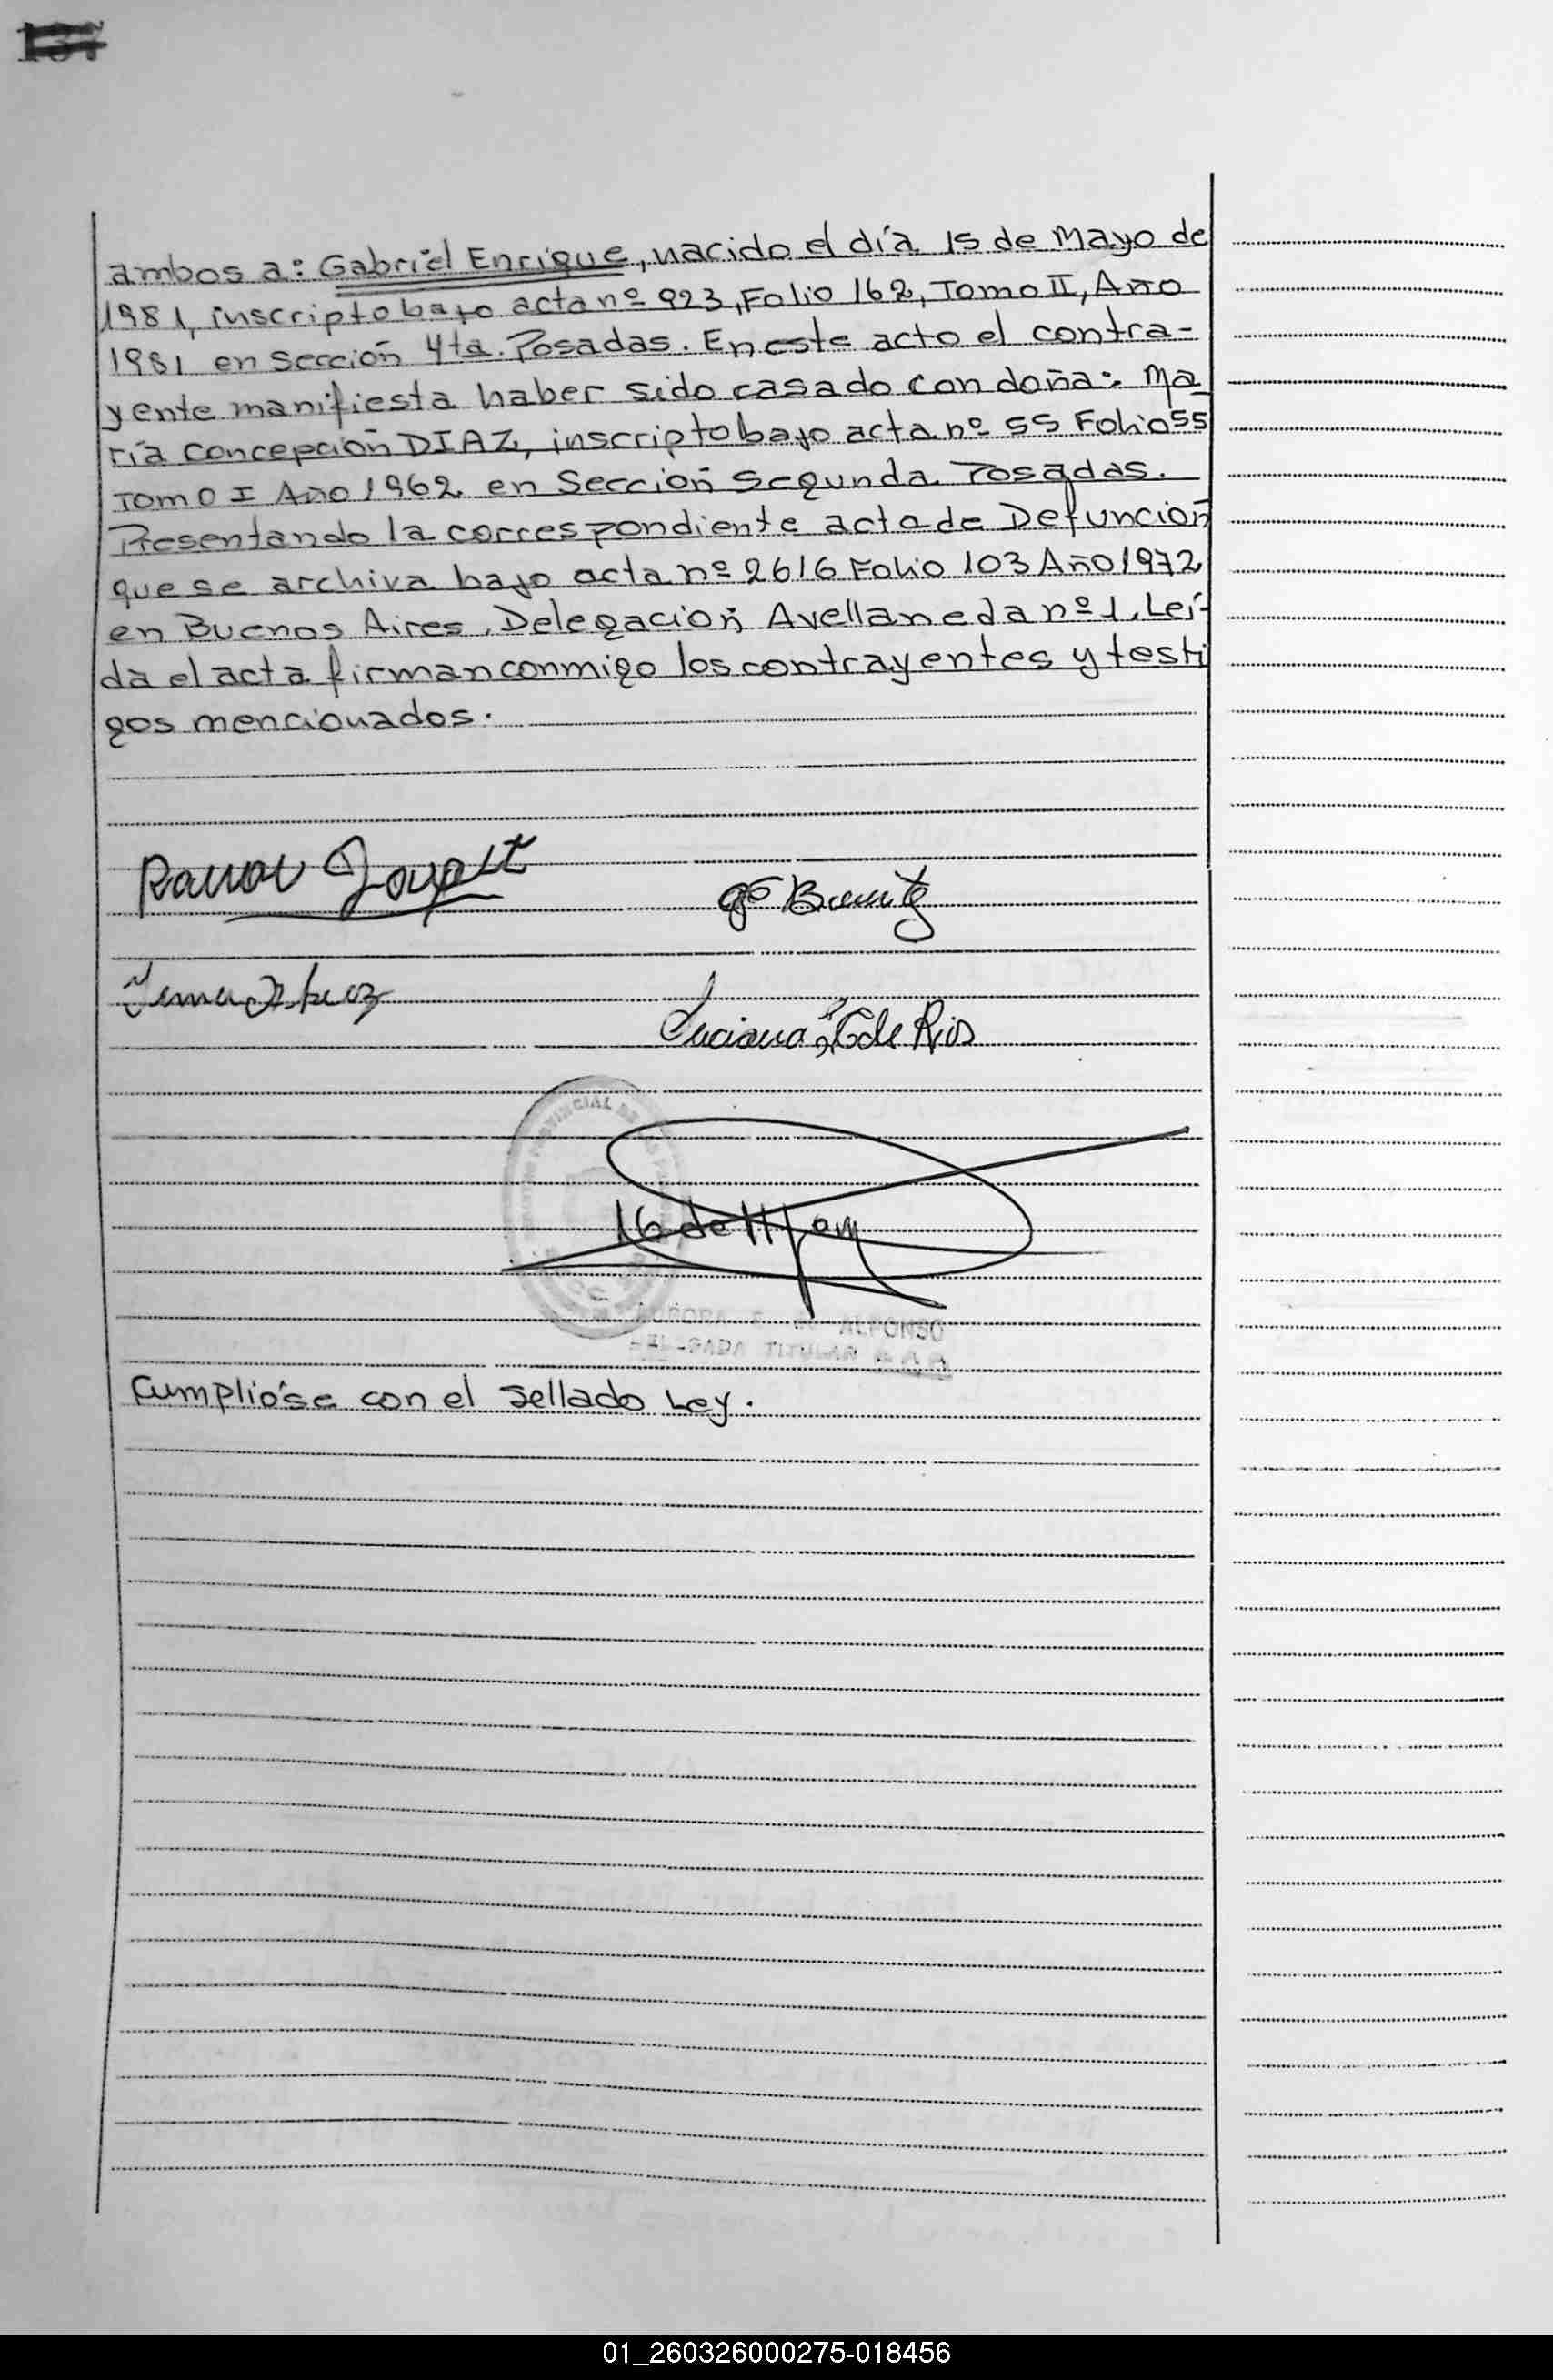 137
ambos a: Gabriel Enrique, nacido el día 15 de Mayo de
1981, inscripto bajo acta nº 923, Folio 162, Tomo II, Año
1981 en Sección 4ta. Posadas. En este acto el contra-
yente manifiesta haber sido casado con doña: Ma
ría Concepción DIAZ, inscripto bajo acta nº 55 Folio 55
Tomo I Año 1962 en Sección Segunda Posadas.
Presentando la correspondiente acta de Defunción
que se archiva bajo acta nº 2616 Folio 103 Año 1972
en Buenos Aires, Delegación Avellaneda nº 1. Leí-
da el acta firman conmigo los contrayentes y testi
gos mencionados.
Ramon
Luciana de Rios
16 de
PROVINCIAL DE LAS
ALFONSO
TITULAR
Cumplióse con el sellado Ley.
01_260326000275-018456